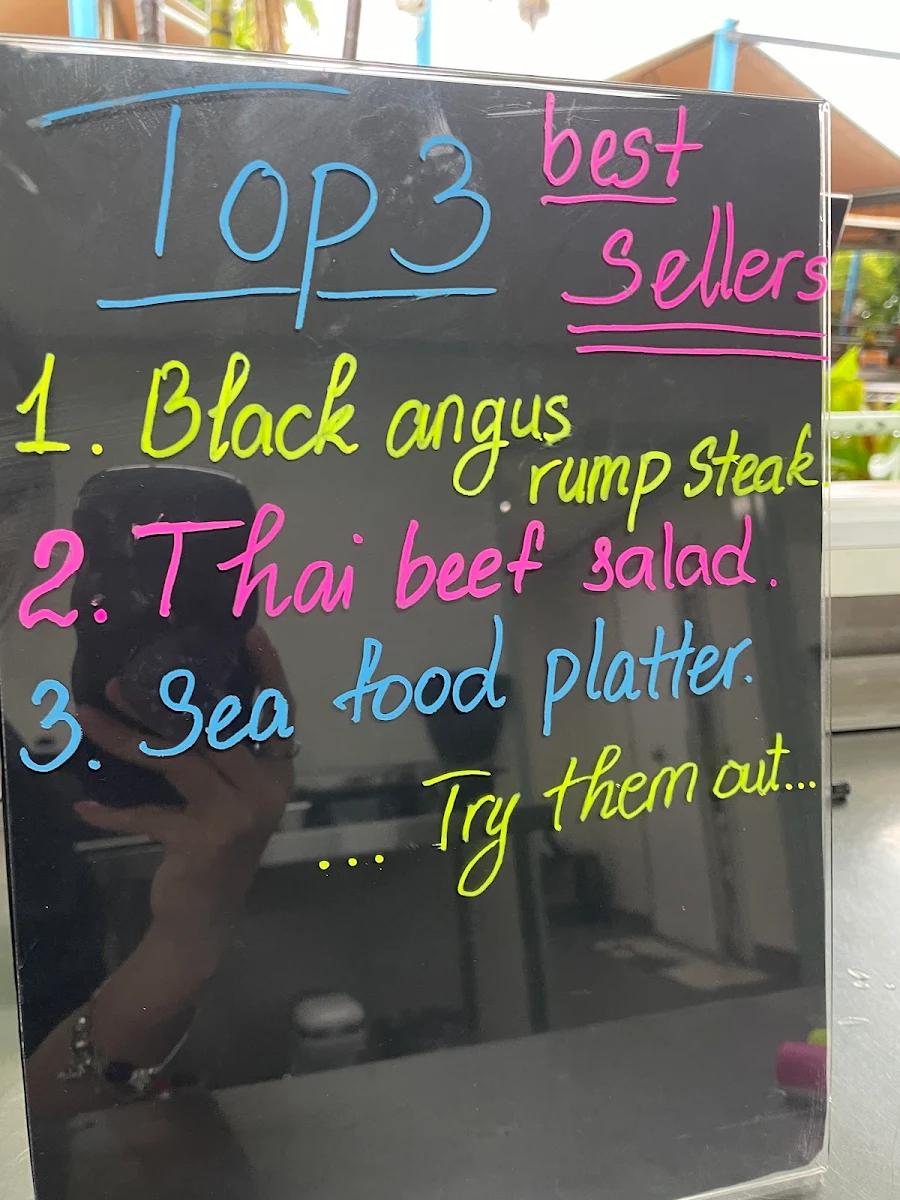 Top 3 best
Sellers
1. Black angus
rump steak.
2. Thai beef salad.
3. Sea food platter.
... Try them out...